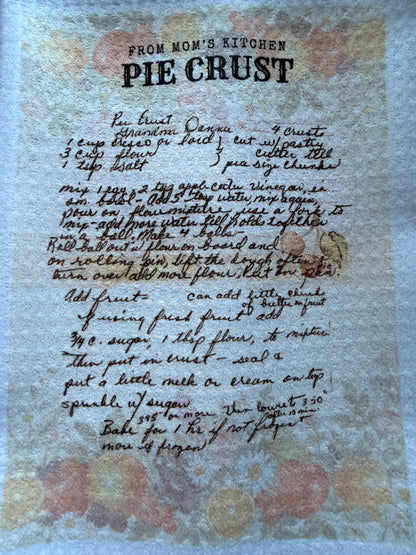 FROM MOM'S KITCHEN
PIE CRUST
Pie Crust
Grandma Dannie 4 crusts
1 cup crisco or lard } cut w/ pastry
3 cup flour } cutter till
1 tsp salt pea size chunks
mix 1 egg, 2 tsp apple cider vinegar, in
sm bowl - Add 5 tbsp water, mix again,
pour on flour mixture use a fork to
mix - add more water till holds together
into a ball. Make 4 balls -
Roll ball out w/ flour on board and
on rolling pin, lift the dough often &
turn over add more flour, Put in pie
Add fruit - can add little chunks
of butter on fruit
if using fresh fruit add
3/4 c. sugar, 1 tbsp flour, to mixture
then put in crust - seal &
put a little melk or cream on top
sprinkle w/ sugar
395° or more then lower to 350°
after 10 min.
Bake for 1 hr if not frozen +
more if frozen